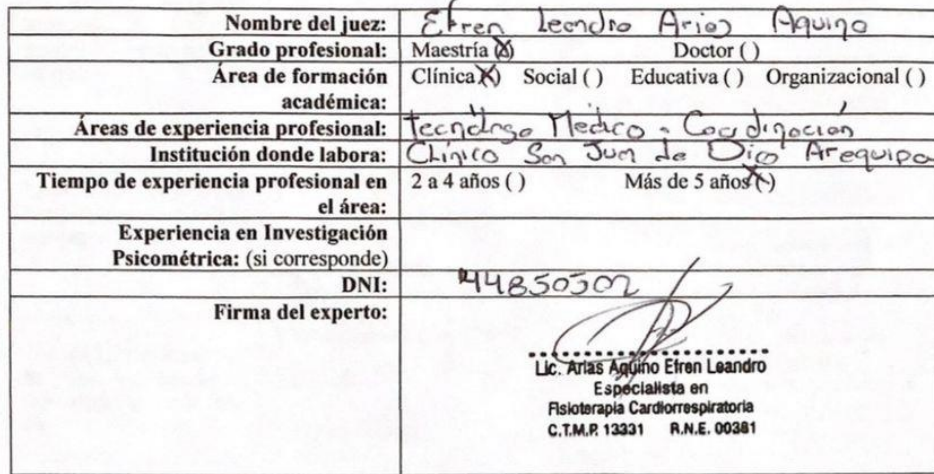 Nombre del juez: Efren Leandro Arias Aquino
Grado profesional: Maestría (X) Doctor ( )
Área de formación académica: Clínica (X) Social ( ) Educativa ( ) Organizacional ( )
Áreas de experiencia profesional: Tecnólogo Medico - Coordinación
Institución donde labora: Clínica San Juan de Dios Arequipa
Tiempo de experiencia profesional en el área: 2 a 4 años ( ) Más de 5 años (X)
Experiencia en Investigación Psicométrica: (si corresponde)
DNI: 44850502
Firma del experto:
Lic. Arias Aquino Efren Leandro
Especialista en
Fisioterapia Cardiorrespiratoria
C.T.M.P. 13331 R.N.E. 00381